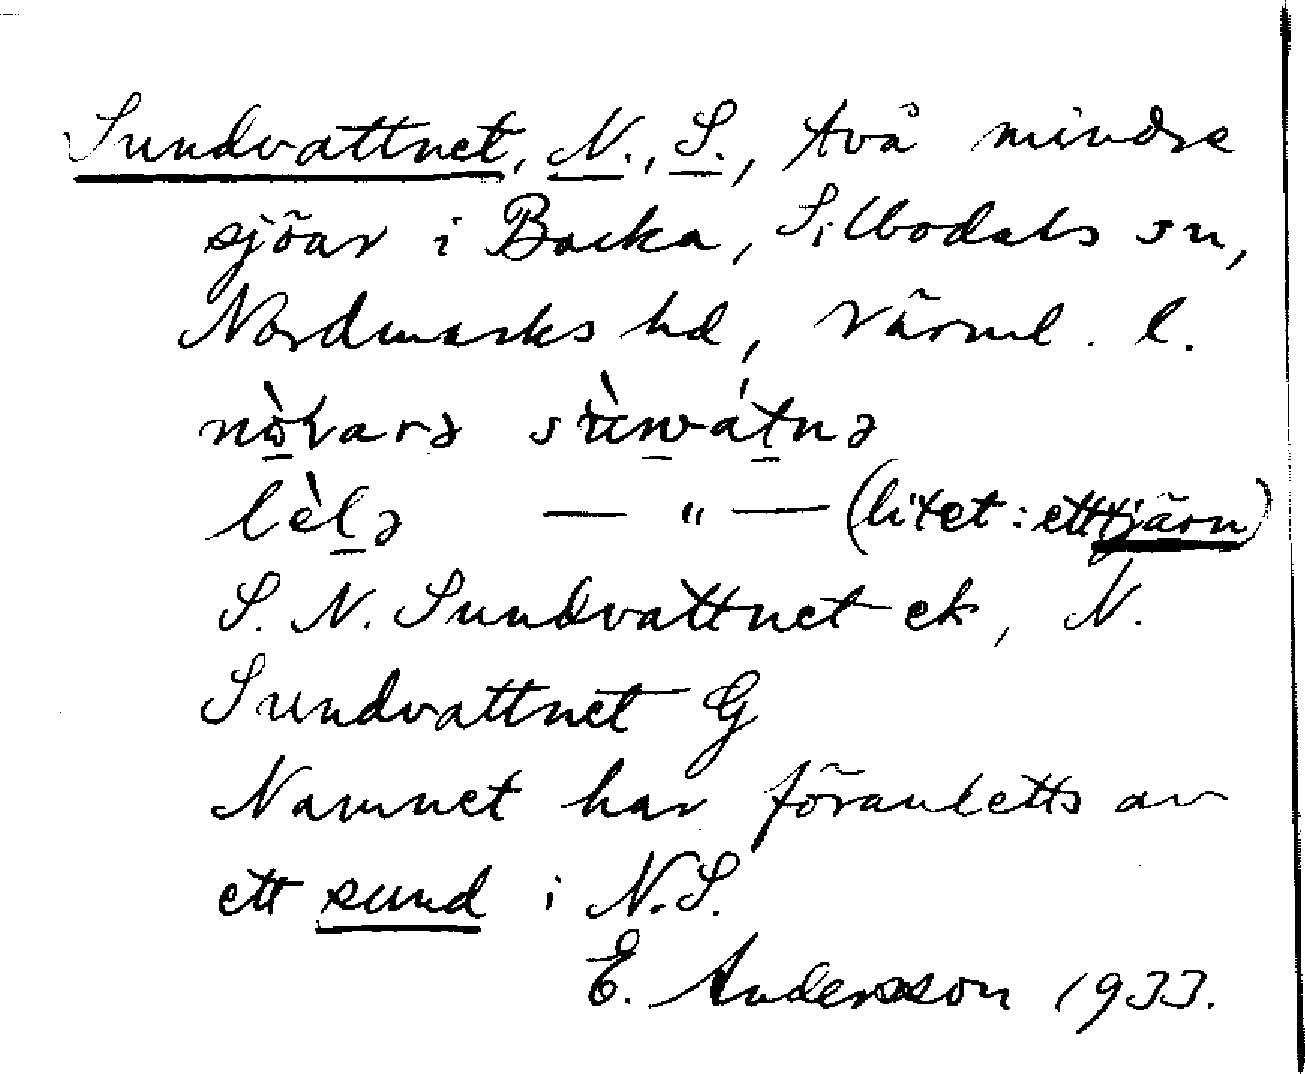 Sundvattnet, N., S., två mindre
sjöar i Backa, Silbodals sn,
Nordmarks hd, Värml. l.
nò̱rarə sùn̠wát̠nə
lèl̠ə — " — (litet: ett tjärn)
S. N. Sundvattnet ek, N.
Sundvattnet G
Namnet har föranletts av
ett sund i N.S.
E. Andersson 1933.